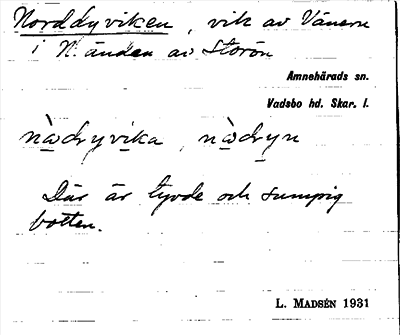 Norddyviken, vik av Vänern
i N. änden av Storön
Amnehärads sn.
Vadsbo hd. Skar. l.
nàdryvika, nàdryn
Där är tyvde och sumpig
botten.
L. MADSÉN 1931